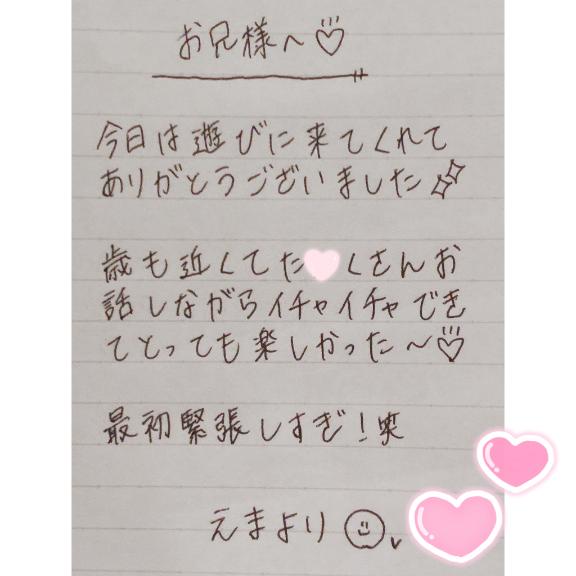 お兄様へ♡
今日は遊びに来てくれて
ありがとうございました✨
歳も近くてたくさんお
話しながらイチャイチャでき
てとっても楽しかった〜♡
最初緊張しすぎ！笑
えまより